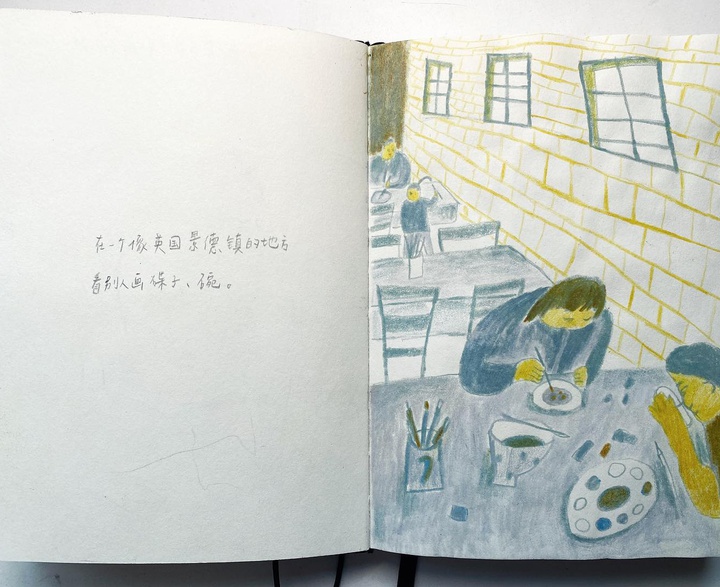 在一个像英国景德镇的地方
看别人画碟子、碗。